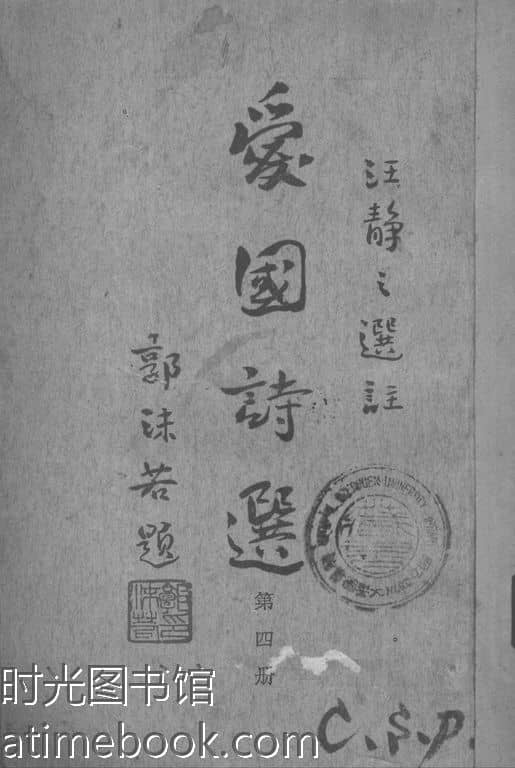 汪静之選註
愛國詩選
第四册
郭沫若題
时光图书馆
atimebook.com
C.S.P.